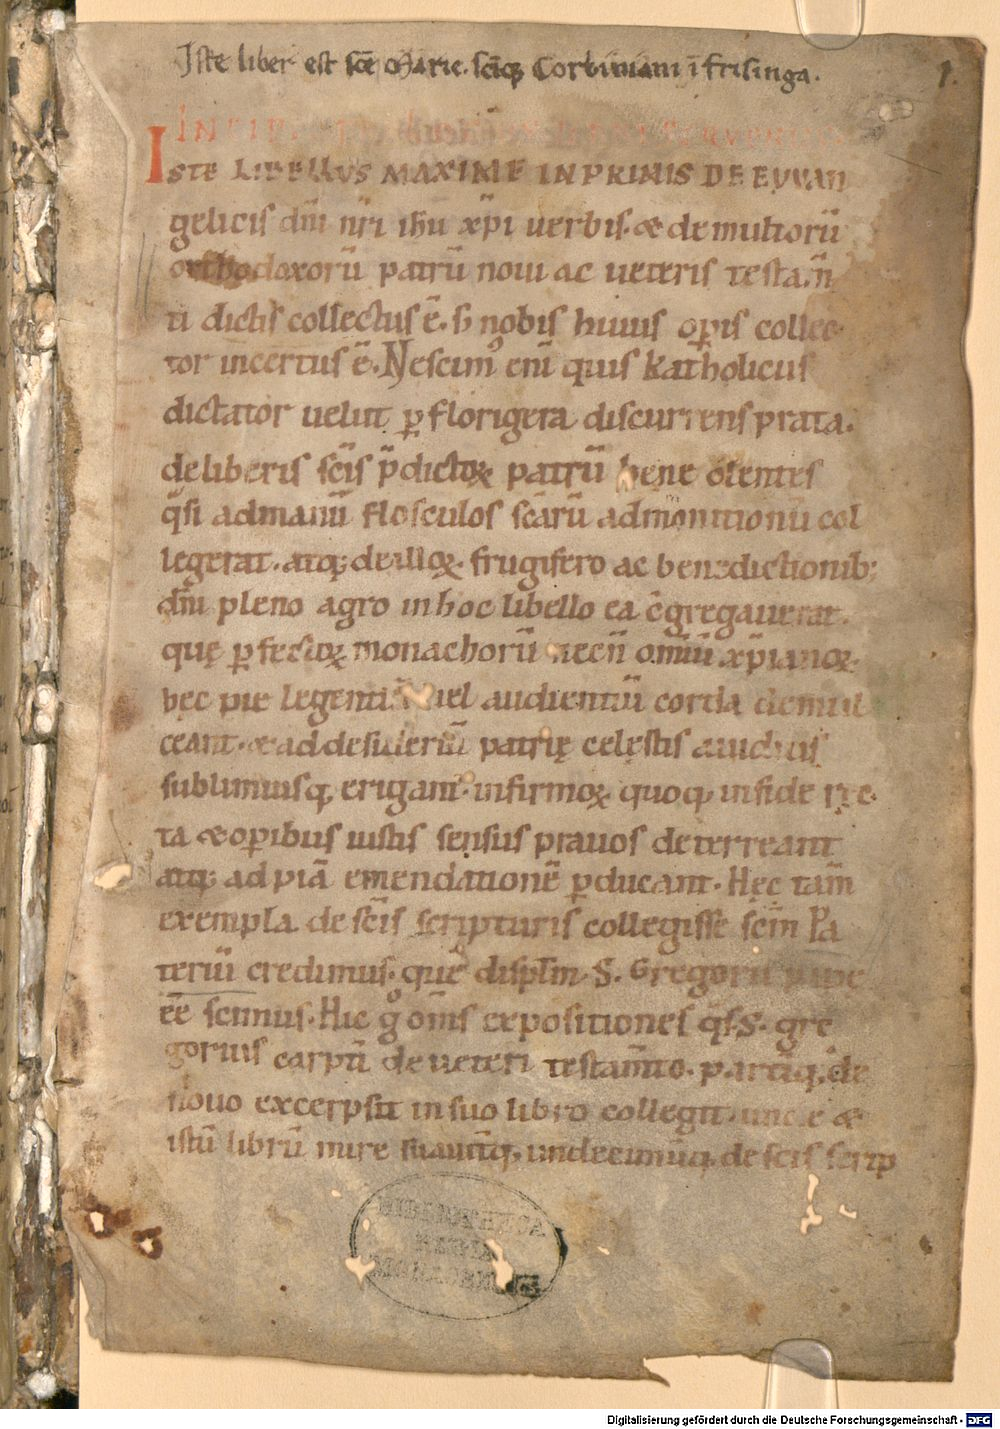 Iste liber est sce Marie. sciq Corbiniani ī frisinga.
1.
INCIPIT
ISTE LIBELLVS MAXIME IN PRIMIS DE EVVAN
gelicis dn̄i nr̄i ih̄u xp̄i uerbis. & de multorū
orthodoxorū patrū noui ac ueteris testam̄
ti dictis collectus ē. s; nobis huius oꝑis collec
tor incertus ē. Nescim' eni quis katholicus
dictator uelut ꝑ florigera discurrens prata.
deliberis sc̄is p̄dictoꝝ patrū bene olentes
q̄si ad manū flosculos sc̄arū admonitionū col
legerat. atq; de illoꝝ. frugifero ac benedictionib;
dn̄i pleno agro in hoc libello ea c̄gregauerat.
quę ꝑfectoꝝ monachorū necn̄ omīū xp̄ianoꝝ.
hęc pie legentiū uel audientiū corda demul
ceant. & ad desideriū patrię celęstis auidius
sublimiusq; erigant. infirmoꝝ quoq; in fide rec
ta & oꝑibus iustis sensus prauos deterreant
atq; ad piā emendationē ꝑducant. Hęc tam̄
exempla de sc̄is scripturis collegisse sc̄m Pa
teriū credimus. quē discip̄lm S. Gregorii pape
eē scimus. Hic g° om̄s expositiones q̄s S. gre
gorius carptī de ueteri testam̄to. partīq; de
nouo excerpsit in suo libro collegit. unde &
istū librū mire suauit̄q; undecunq; de sc̄is scrip
Digitalisierung gefördert durch die Deutsche Forschungsgemeinschaft - DFG